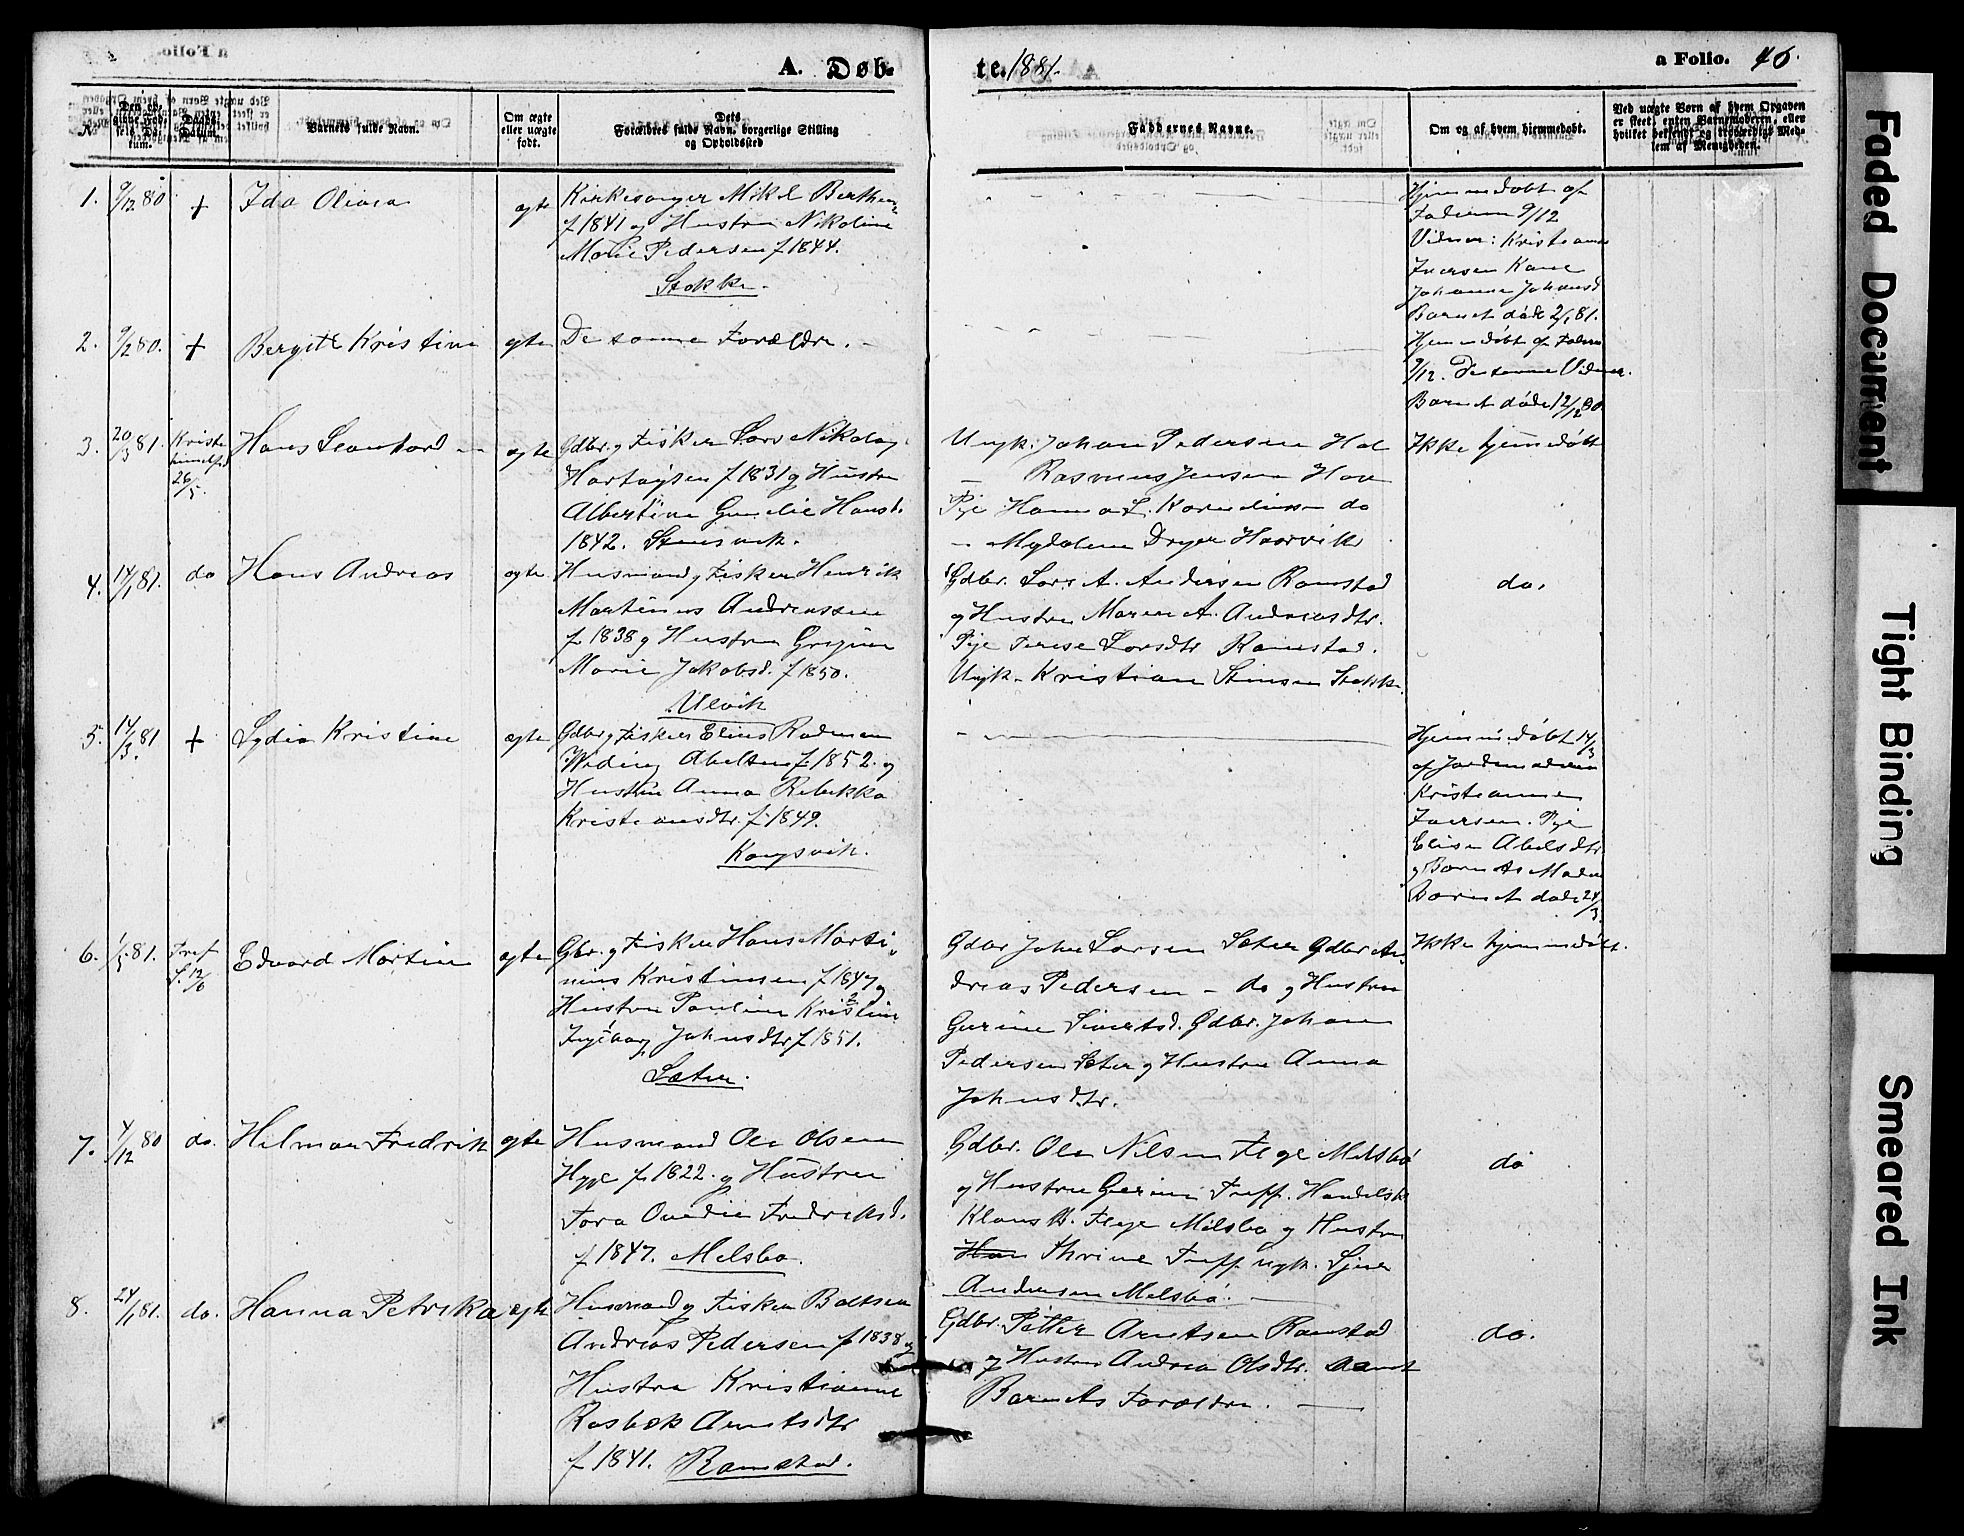 A. Døb-
te. 1881.
a Folio. 46.
No
Barnets fulde Navn.
Om ægte eller uægte født.
Dets Forældres fulde Navn, borgerlige Stilling og Opholdssted
Faddernes Navne.
Om og af hvem hjemmedøbt.
Ved uægte Børn af hvem Opgaven er skeet, enten Barnemoderen, eller hvilket bekjendt og troværdigt Medlem af Menigheden.
1. 9/12 80 + Ida Olivia ægte
Kirkesanger Mikal
f 1841 og Hustru Nikoline
Marie Pedersen f 1844.
Stokke.
Hjemmedøbt af
Faderen 9/12
Vidner: Kristianne
Iversen Kone
Johanna Johansd
Barnet døde 2/1 81.
2. 9/12 80. + Bergitte Kristine ægte De samme Forældre.
Hjemmedøbt af Faderen
9/12. De samme Vidner.
Barnet døde 12/12 80
3. 20/3 81. Kristi himmelfd 26/5. Hans Leonhard ægte
Gdbr. og Fisker Lars Nikolay
Hartvigsen f 1831 og Hustru
Albertine Hansd.
1842. Stensvik.
Ungk. Johan Pedersen
— Rasmus Jensen
Pige Hanna L. Korneliussen do
— Magdalene Dreyer
Ikke hjemmedøbt
4. 14/1 81. do Hans Andreas ægte
Husmand og Fisker Henrik
Martinus Andreassen
f. 1838 og Hustru
Marie Jakobsd. f 1850.
Ulvik
Gdbr. Lars A. Andersen Ramstad
og Hustru Maren A. Andreasdtr.
Pige Terese Larsdtr Ramstad.
Ungk. Kristian Simsen Stokke.
do.
5. 14/3. 81 + Lydia Kristine ægte
Gdbr og Fisker Elias Rodman
Abelsen f. 1852. og
Hustru Anna Rebekka
Kristiansdtr. f. 1849.
Kongsvik.
Hjemmedøbt 14/3
af Jordemoderen
Kristianne
Iversen. Pige
Elise Abelsdtr
og Barnets Moder
Barnet døde 24/3.
6. 1/3 81. Tref. S. 12/6 Edvard Martin ægte
Gbr. og Fisker Hans Marti-
nius Kristensen f 1847 og
Hustru Pauline Kristine
Ingeborg Johnsdtr f 1851.
Sæter.
Gdbr John Larsen Sæter Gdbr An-
dreas Pedersen — do og Hustru
Gurine Sivertsd. Gdbr. Johan
Pedersen Sæter og Hustru Anna
Johnsdtr.
Ikke hjemmedøbt.
7. 4/12 80 do. Hilmar Fredrik ægte
Husmand Ole Olsen
f. 1822. og Hustru
Tora Ovedie Fredriksd.
f 1847. Melsbø.
Gdbr. Ole Nilsen Melsbø
og Hustru Gurine
Klaus Melsbø og Hustru
Andersen Melsbø.
do
8. 24/1 81. do. Hanna Petrika ægte
Husmand og Fisker Baltser
Andreas Pedersen f 1838 og
Hustru Kristianne
Rasbæk Arntsdtr
f 1841. Ramstad.
Gdbr. Petter Arntsen Ramstad
og Hustru Andrea Olsdtr. samt
Barnets Forældre.
do.
Faded Document
Tight Binding
Smeared Ink